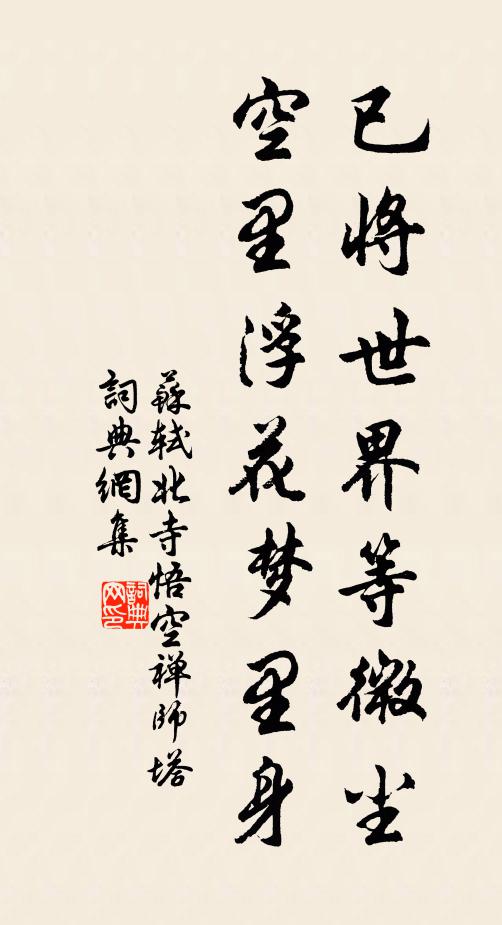 已將世界等微尘
空里浮花梦里身
蘇軾北寺悟空禅師塔
詞典網集
詞典網印